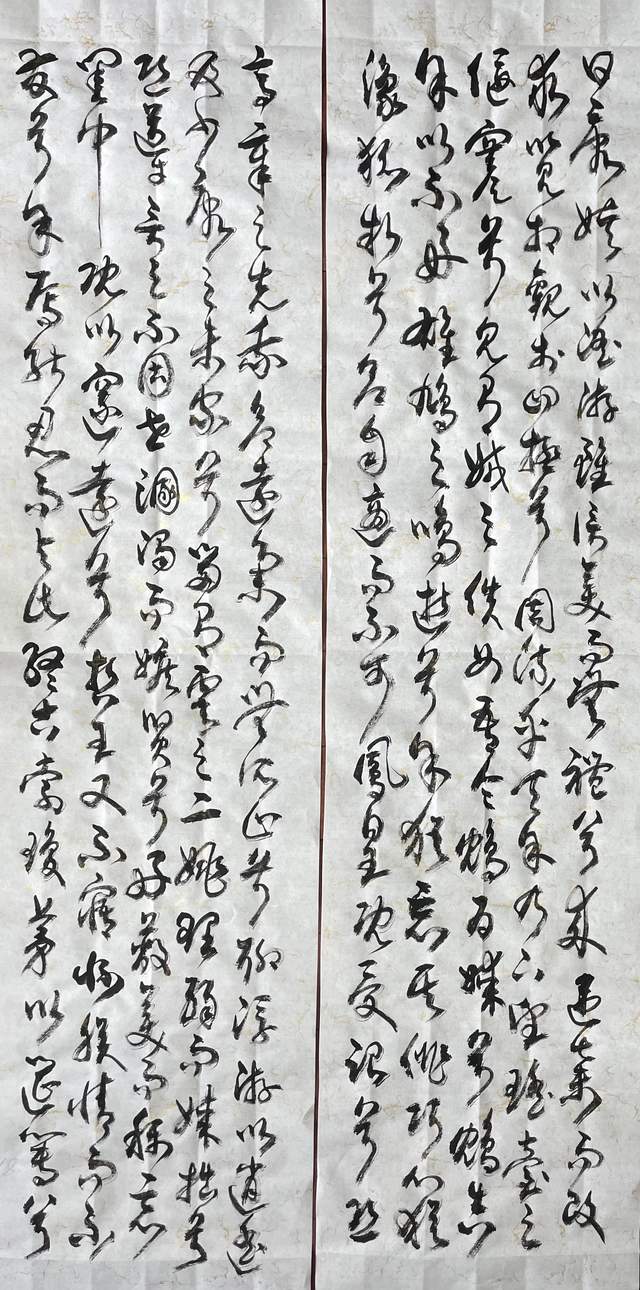 日康娛以淫游雖信美而無禮兮來違棄而改
求覽相觀於四極兮周流乎天余乃下望瑤臺之
偃蹇兮見有娀之佚女吾令鴆為媒兮鴆告
余以不好雄鳩之鳴逝兮余猶惡其佻巧心猶
豫狐疑兮欲自適而不可鳳皇既受詒兮恐
高辛之先我欲遠集而無所止兮聊浮游以逍遙
及少康之未家兮留有虞之二姚理弱而媒拙兮
恐導言之不固世溷濁而嫉賢兮好蔽美而稱惡
閨中既以邃遠兮哲王又不寤懷朕情而不
發兮余焉能忍而與此終古索瓊茅以筳篿兮